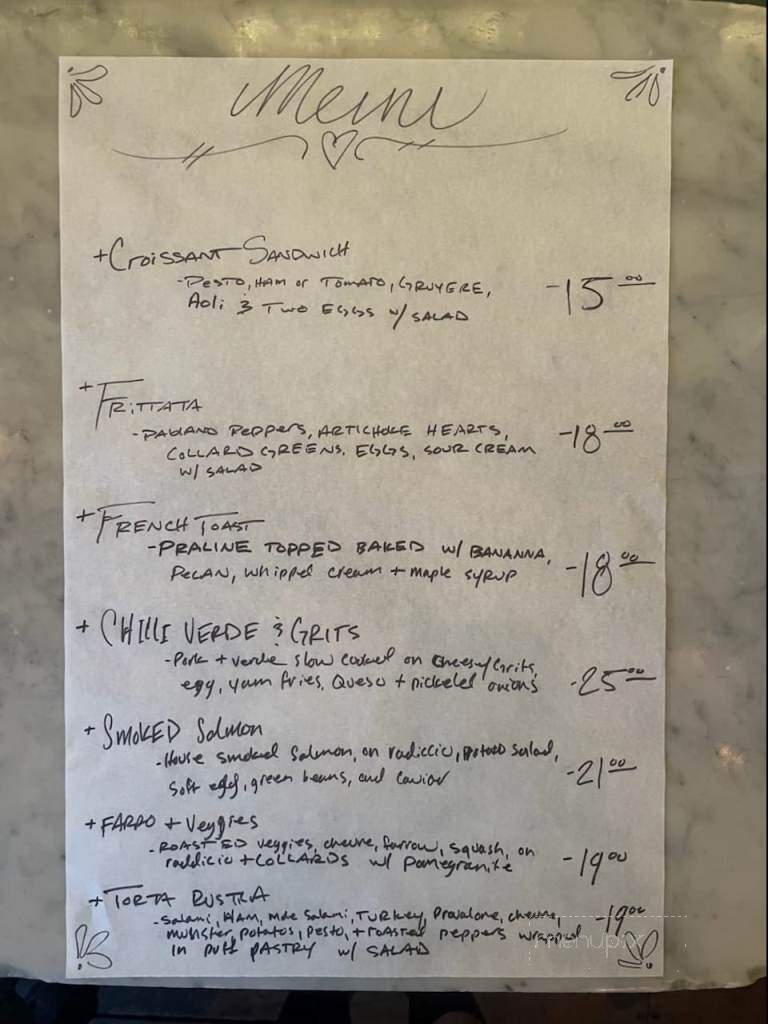 Menu
+ Croissant Sandwich
- Pesto, Ham or Tomato, Gruyere,
Aoli & Two Eggs w/ Salad
-15.00
+ Frittata
- Pablano Peppers, Artichoke Hearts,
Collard Greens, Eggs, Sour Cream
w/ Salad
-18.00
+ French Toast
- Praline Topped Baked w/ Bananna,
Pecan, Whipped cream + maple syrup
-18.00
+ Chilli Verde & Grits
- Pork + verde slow cooked on cheesey Grits,
egg, yam fries, Queso + pickeled onions
-25.00
+ Smoked Salmon
- House smoked Salmon, on radiccio, potato salad,
Soft egg, green beans, and caviar
-21.00
+ Farro + Veggies
- Roasted veggies, chevre, farrow, squash, on
raddicio + Collards w/ pomegranite
-19.00
+ Torta Rustra
- Salami, Ham, Salami, Turkey, Provalone, chevre,
munster, potatos, pesto, + roasted peppers wrapped
in puff pastry w/ Salad
-19.00
menupix